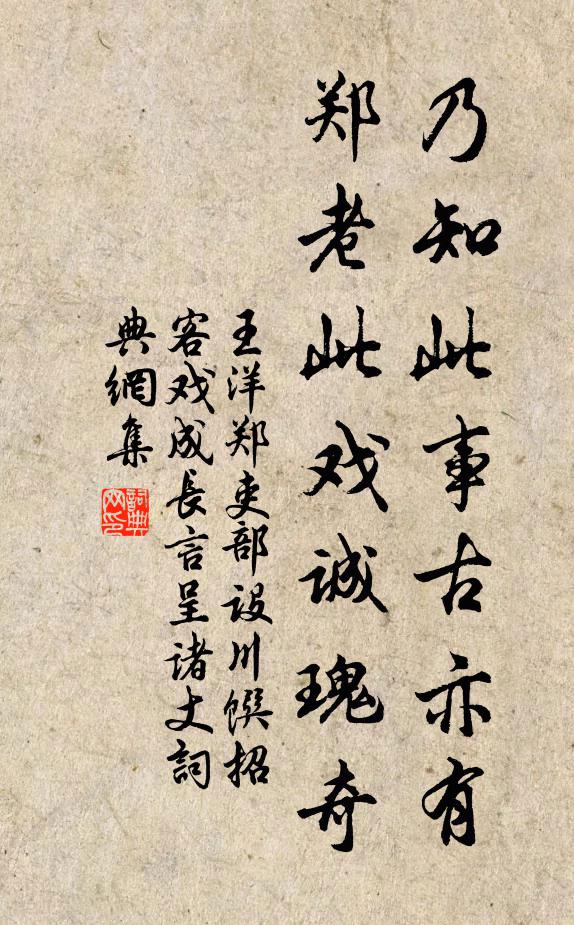 乃知此事古亦有
郑老此戏诚瑰奇
王洋郑吏部设川馔招
客戏成长言呈诸丈词
典網集
詞典
网印